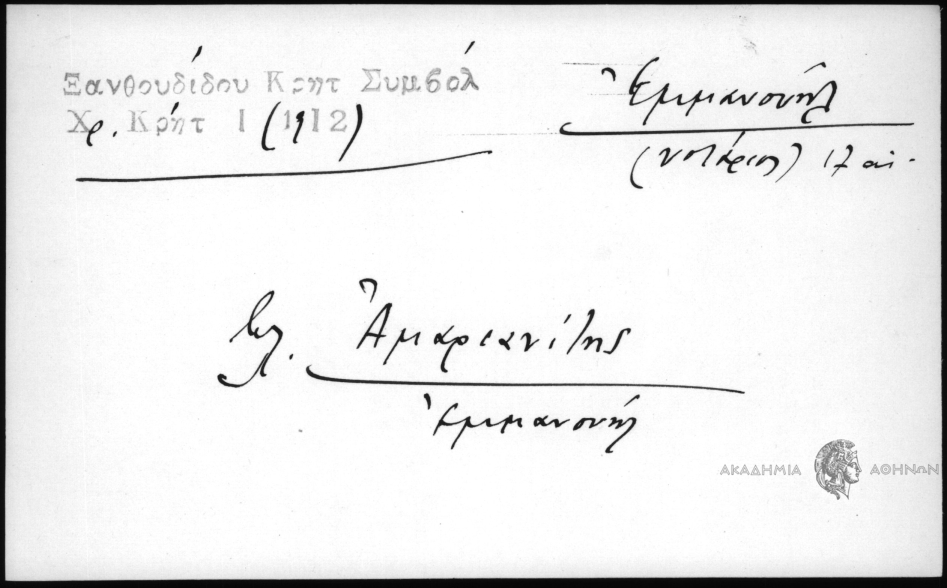 Ξανθουδίδου Κρητ Συμβόλ
Χρ. Κρήτ Ι (1912)
Ἐμμανουὴλ
(νοτάριος) 17 αἰ.
βλ. Ἀμαριανίτης
Ἐμμανουὴλ
ΑΚΑΔΗΜΙΑ ΑΘΗΝΩΝ